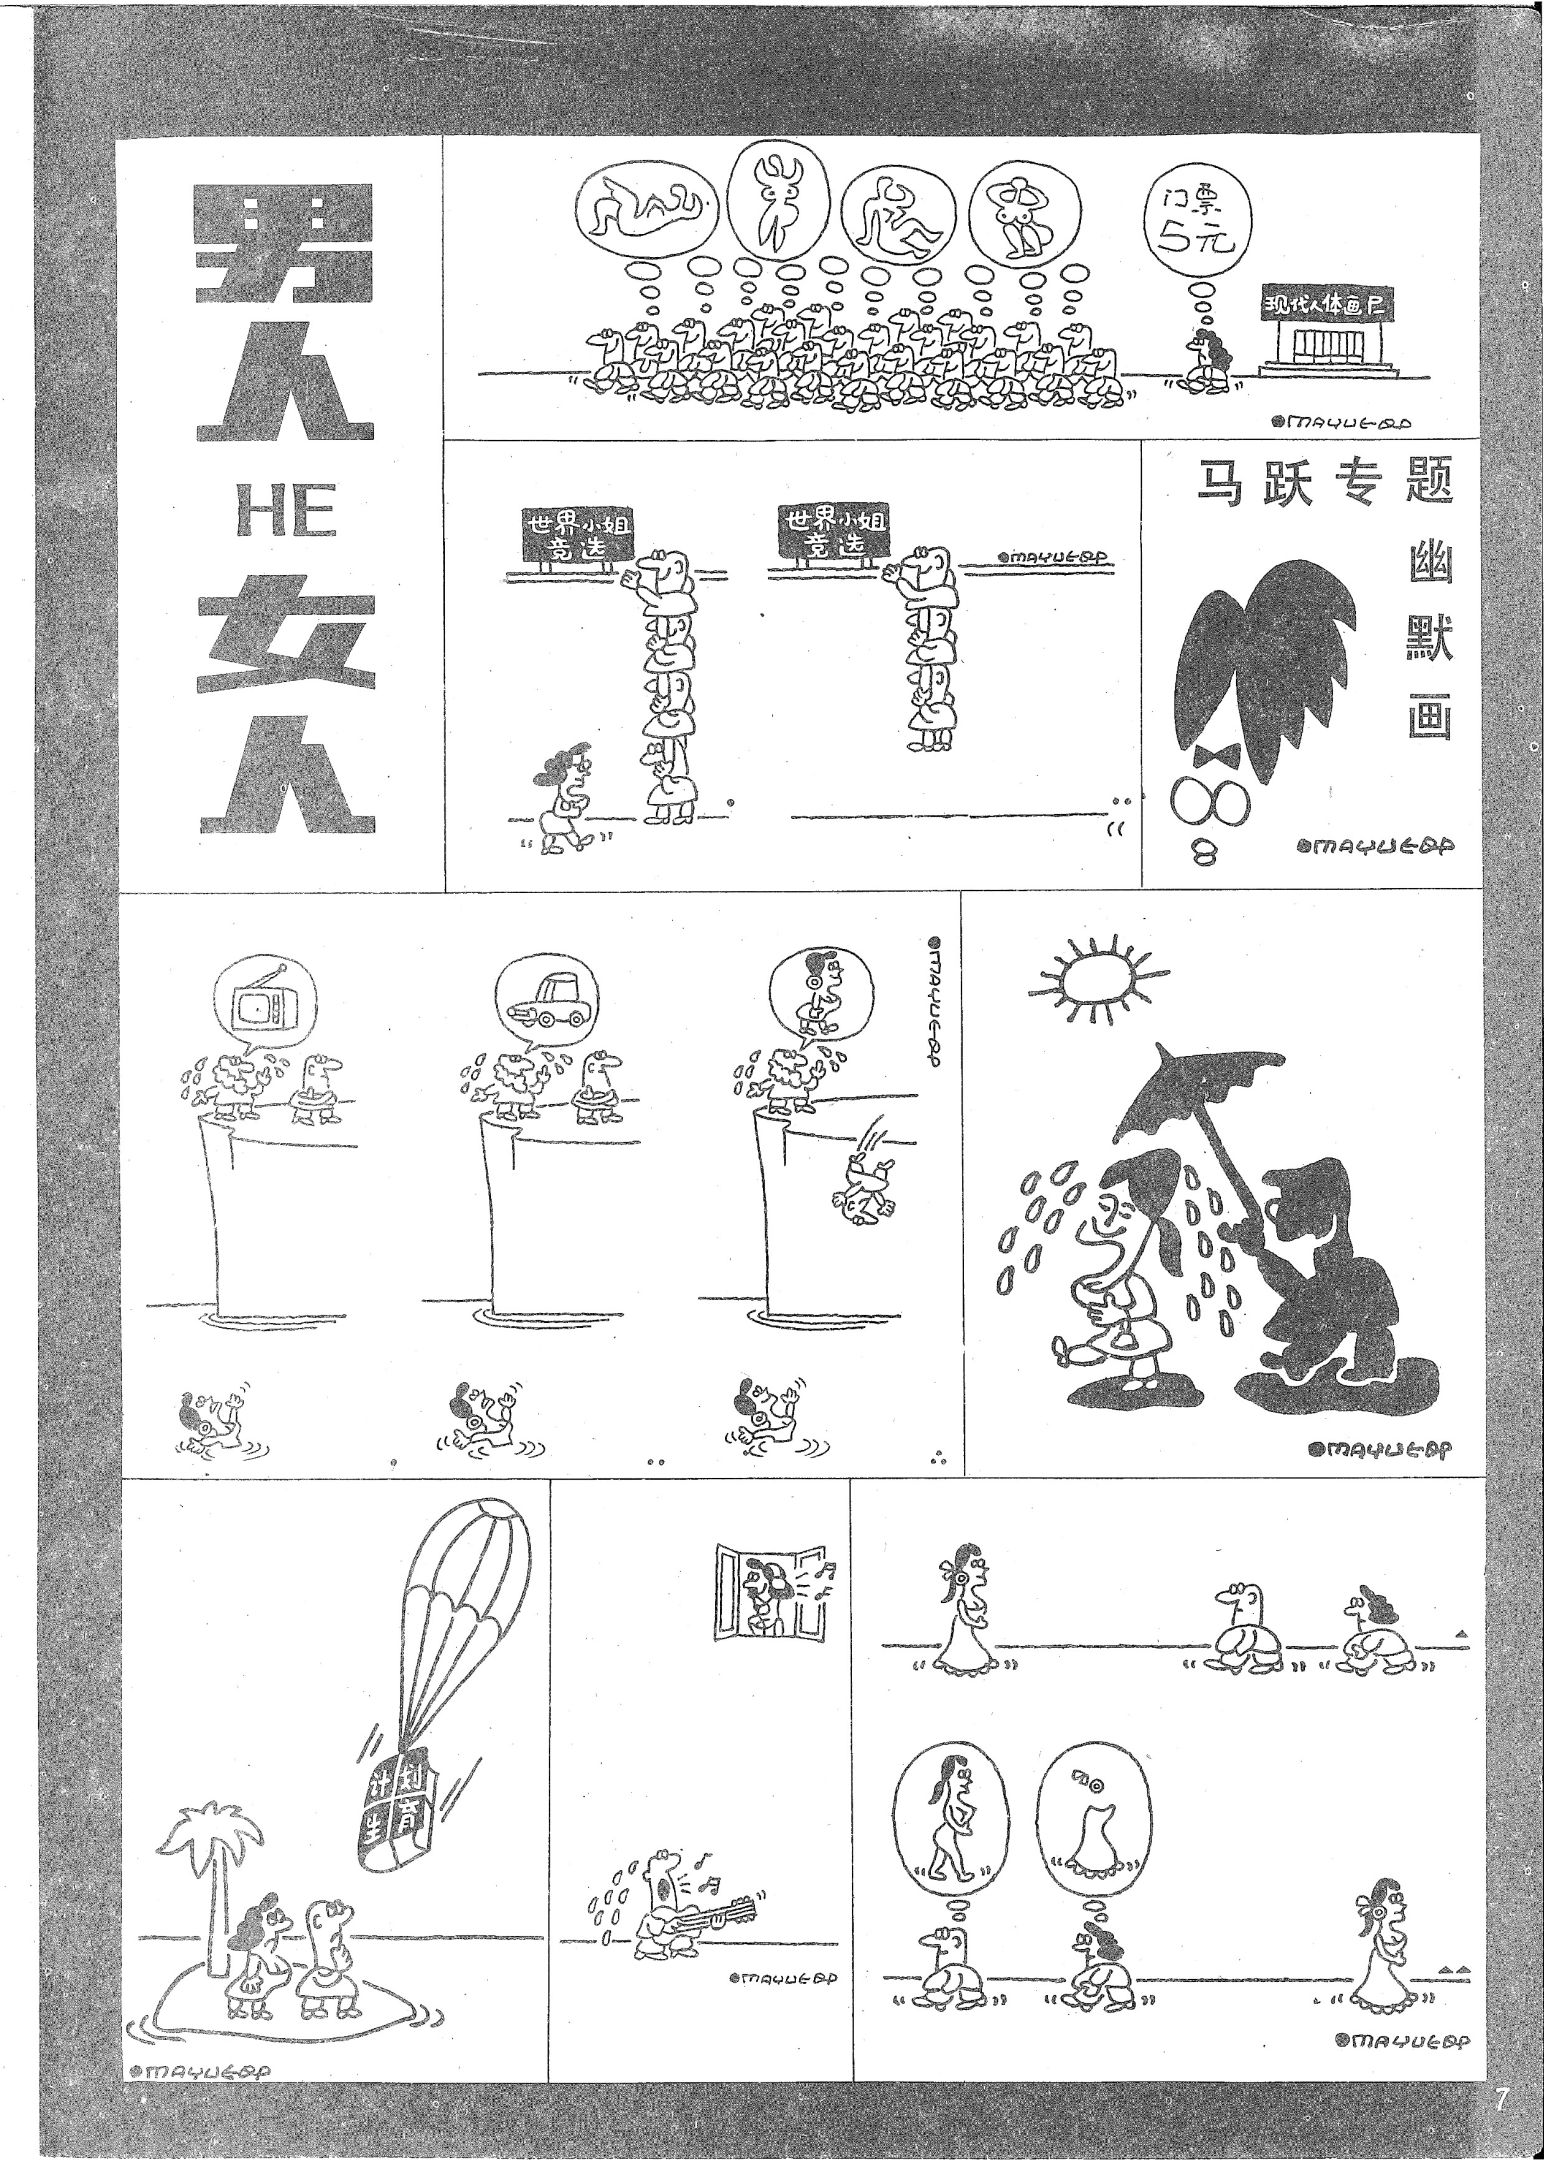 男人
HE
女人
门票
5元
现代人体画尸
●MAYUEQP
世界小姐
竞选
世界小姐
竞选
●MAYUEQP
马跃专题
幽默画
●MAYUEQP
●MAYUEQP
●MAYUEQP
计划
生育
●MAYUEQP
●MAYUEQP
●MAYUEQP
7